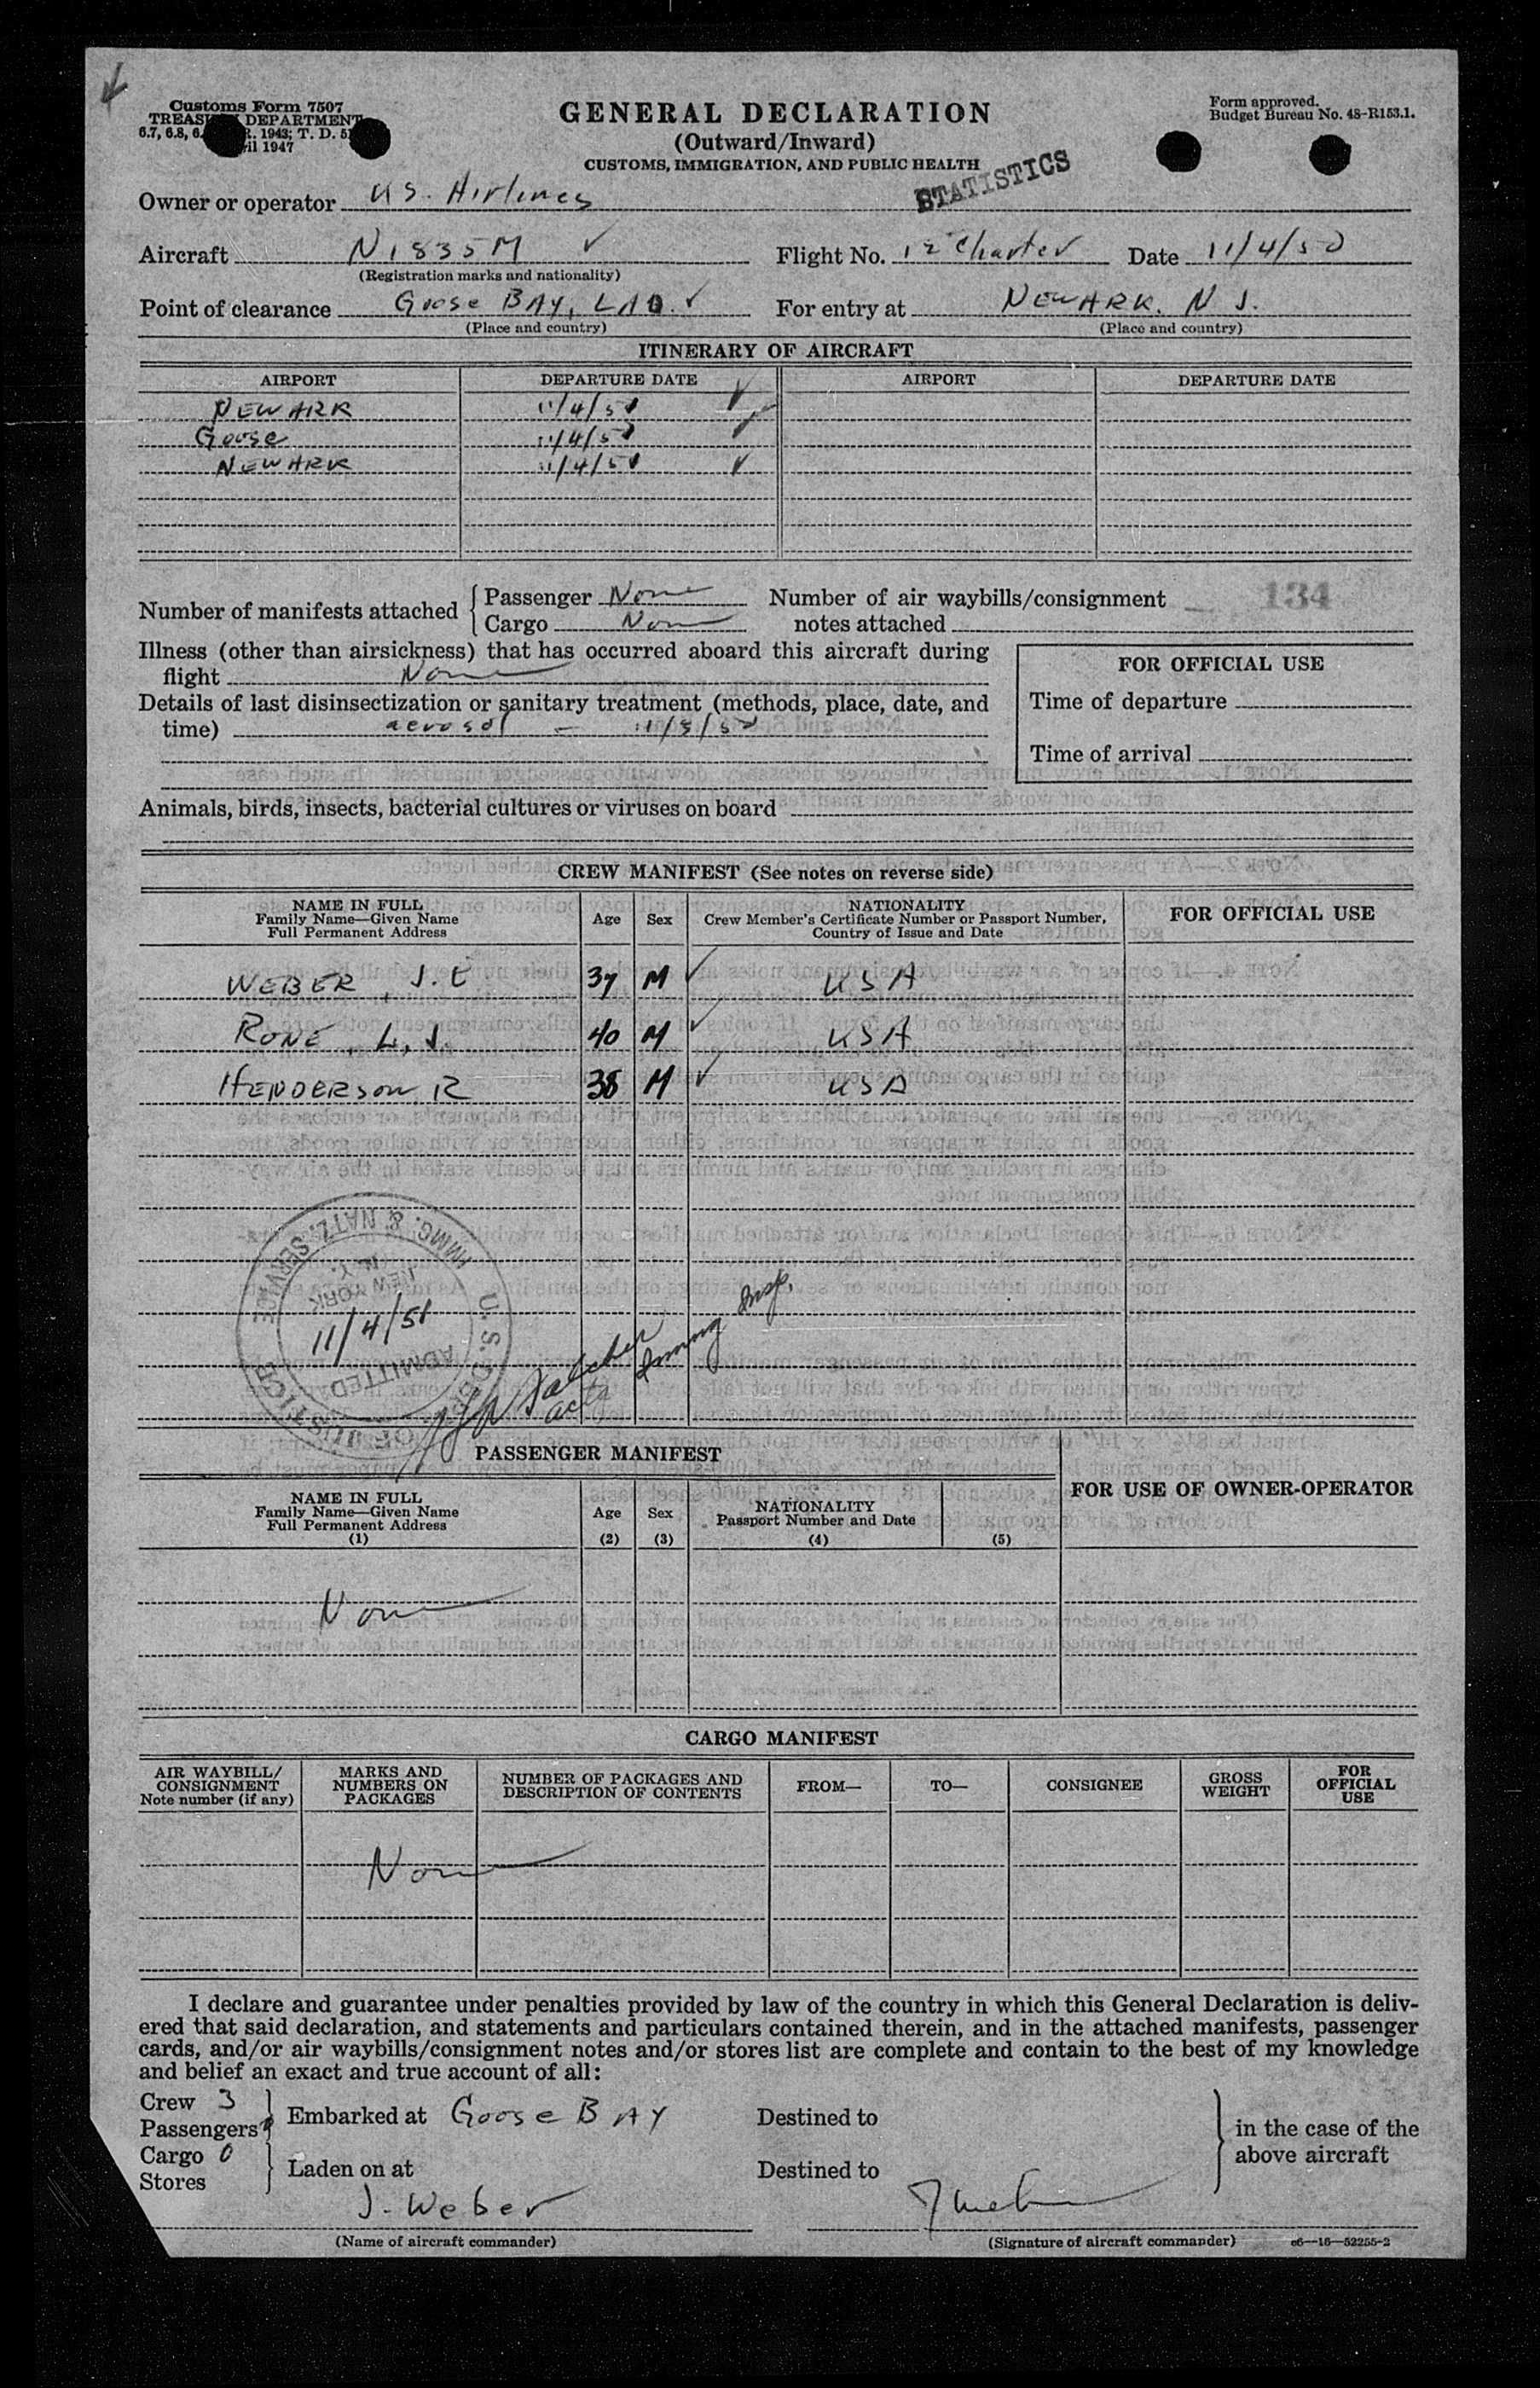 Customs Form 7507
TREASURY DEPARTMENT
1943; T. D.
1947
GENERAL DECLARATION
(Outward/Inward)
CUSTOMS, IMMIGRATION, AND PUBLIC HEALTH
Form approved.
Budget Bureau No. 48-R153.1.
STATISTICS
Owner or operator U.S. Airlines
Aircraft N1835M ✓ Flight No. 12 Charter Date 11/4/50
(Registration marks and nationality)
Point of clearance Goose BAY, LAB. ✓ For entry at NEWARK. N J.
(Place and country) (Place and country)
ITINERARY OF AIRCRAFT
AIRPORT DEPARTURE DATE AIRPORT DEPARTURE DATE
NEWARK 11/4/50 ✓
Goose 11/4/50 ✓
NEWARK 11/4/50 ✓
Number of manifests attached { Passenger None Number of air waybills/consignment 134
Cargo None notes attached
Illness (other than airsickness) that has occurred aboard this aircraft during
flight None
FOR OFFICIAL USE
Details of last disinsectization or sanitary treatment (methods, place, date, and
time) aerosol — 11/3/50
Time of departure
Time of arrival
Animals, birds, insects, bacterial cultures or viruses on board
CREW MANIFEST (See notes on reverse side)
NAME IN FULL
Family Name—Given Name
Full Permanent Address
Age Sex
NATIONALITY
Crew Member's Certificate Number or Passport Number,
Country of Issue and Date
FOR OFFICIAL USE
WEBER, J. E 37 M ✓ USA
RONE, L. J. 40 M ✓ USA
HENDERSON R 38 M ✓ USA
U. S. DEPT. OF JUSTICE
IMMG. & NATZ. SERVICE
NEW YORK
N. Y.
11/4/50
ADMITTED
actg Immig Insp.
PASSENGER MANIFEST
NAME IN FULL
Family Name—Given Name
Full Permanent Address
(1)
Age
(2)
Sex
(3)
NATIONALITY
Passport Number and Date
(4) (5)
FOR USE OF OWNER-OPERATOR
None
CARGO MANIFEST
AIR WAYBILL/
CONSIGNMENT
Note number (if any)
MARKS AND
NUMBERS ON
PACKAGES
NUMBER OF PACKAGES AND
DESCRIPTION OF CONTENTS
FROM—
TO—
CONSIGNEE
GROSS
WEIGHT
FOR
OFFICIAL
USE
None
I declare and guarantee under penalties provided by law of the country in which this General Declaration is deliv-
ered that said declaration, and statements and particulars contained therein, and in the attached manifests, passenger
cards, and/or air waybills/consignment notes and/or stores list are complete and contain to the best of my knowledge
and belief an exact and true account of all:
Crew 3
Passengers 0 } Embarked at Goose BAY Destined to
Cargo 0
Stores } Laden on at Destined to
} in the case of the
above aircraft
J. Weber JWeber
(Name of aircraft commander) (Signature of aircraft commander) c6—16—52255-2